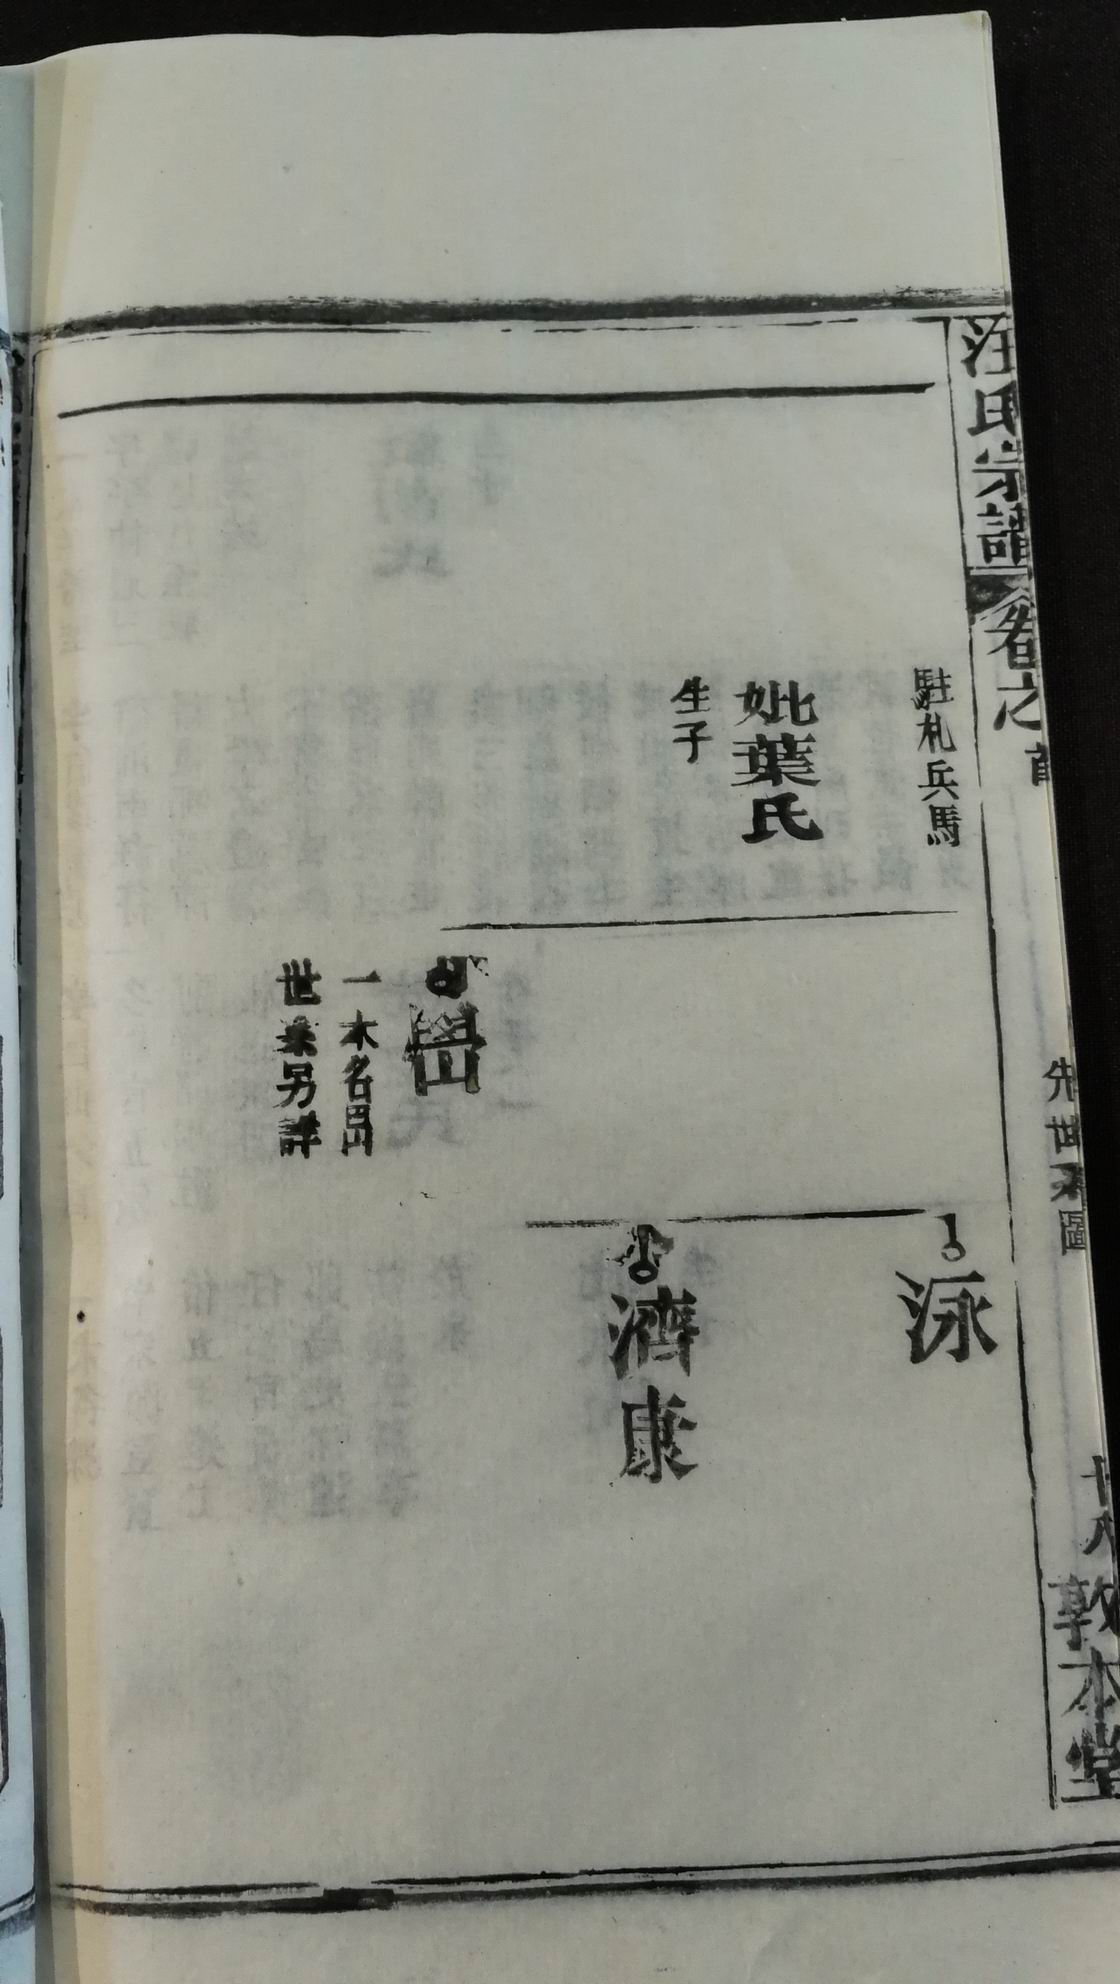 汪氏宗譜
卷之首
先世系圖
十八
敦本堂
駐札兵馬
妣葉氏
生子
泳
濟康
一木名
世系另詳